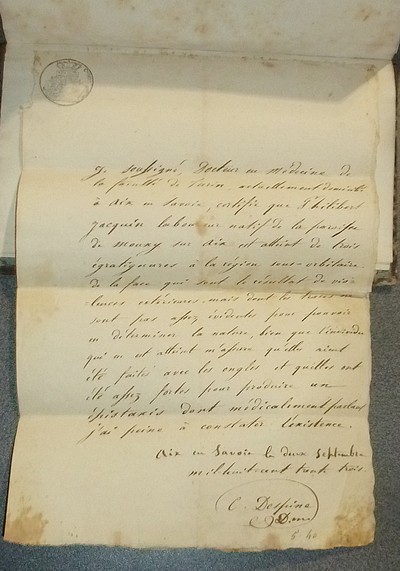 Je soussigné, Docteur en médecine de
la faculté de Turin, actuellement domicilié
à Aix en Savoie, certifie que Philibert
Jacquin laboureur natif de la paroisse
de mouxy sur Aix est atteint de trois
égratignures à la région sous-orbitaire
de la face qui sont le résultat de vio-
lences extérieures, mais dont les traces ne
sont pas assez évidentes pour pouvoir
en déterminer la nature, bien que l'individu
qui en est atteint m'assure qu'elles aient
été faites avec les ongles et qu'elles ont
été assez fortes pour produire un
épistaxis dont médicalement parlant
j'ai peine à constater l'existence.
Aix en Savoie le deux Septembre
mil huit cent trente trois
C. Despine
D.